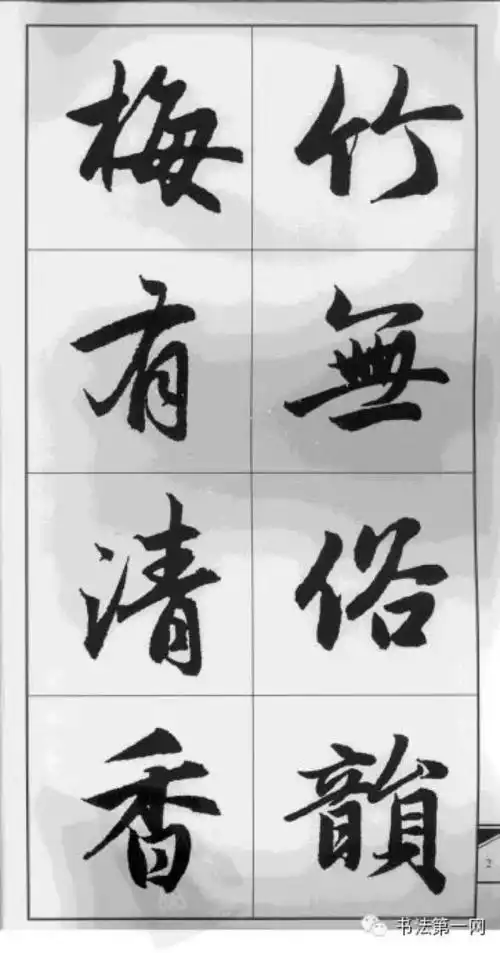 竹無俗韻
梅有清香
2
书法第一网